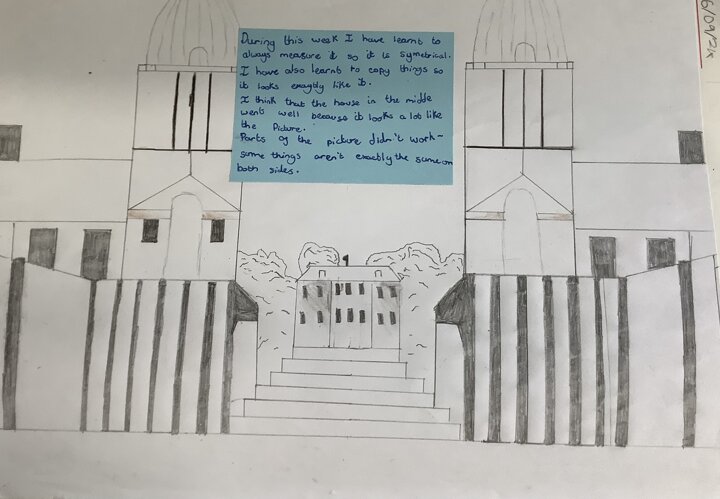 During this week I have learnt to
always measure it so it is symetrical.
I have also learnt to copy things so
it looks exagtly like it.
I think that the house in the middle
went well because it looks a lot like
the Picture.
Parts og the picture didn't work-
some things aren't exactly the same on
both sides.